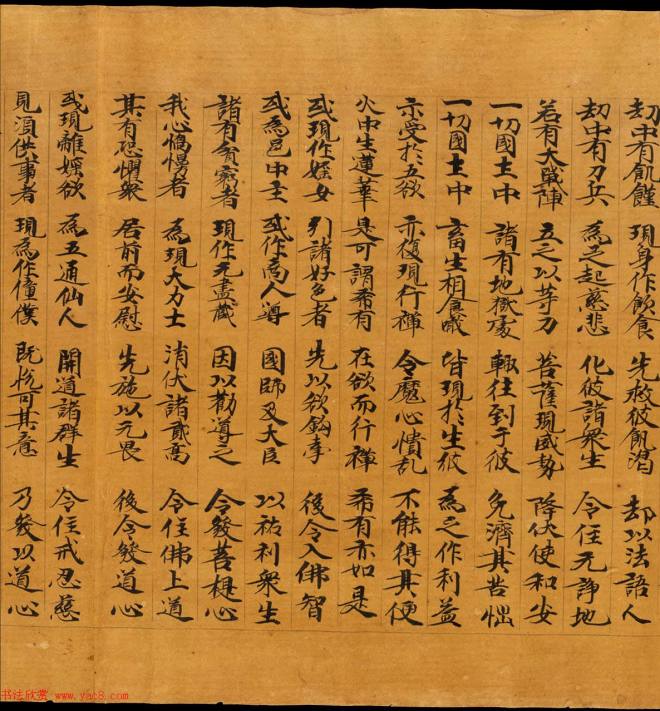 劫中有飢饉 現身作飲食 先救彼飢渴 却以法語人
劫中有刀兵 為之起慈悲 化彼諸衆生 令住无諍地
若有大戰陣 立之以等力 菩薩現威勢 降伏使和安
一切國土中 諸有地獄處 輙往到于彼 免濟其苦惱
一切國土中 畜生相食噉 皆現於生彼 為之作利益
示受於五欲 亦復現行禪 令魔心憒亂 不能得其便
火中生蓮華 是可謂希有 在欲而行禪 希有亦如是
或現作婬女 引諸好色者 先以欲鈎牽 後令入佛智
或為邑中主 或作商人導 國師及大臣 以祐利衆生
諸有貧窮者 現作无盡藏 因以勸導之 令發菩提心
我心憍慢者 為現大力士 消伏諸貢高 令住佛上道
其有恐懼衆 居前而安慰 先施以无畏 後令發道心
或現離婬欲 為五通仙人 開道諸群生 令住戒忍慈
見須供事者 現為作僮僕 既悅可其意 乃發以道心
书法欣赏 www.yac8.com